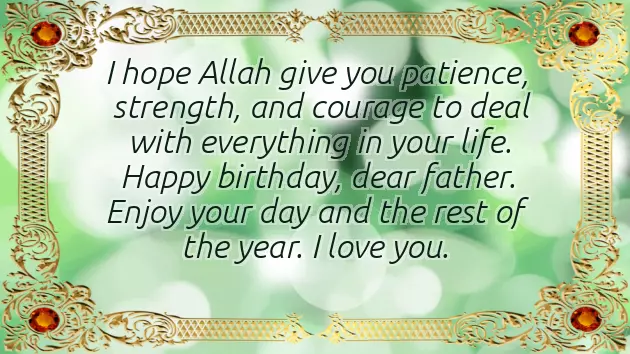 I hope Allah give you patience,
strength, and courage to deal
with everything in your life.
Happy birthday, dear father.
Enjoy your day and the rest of
the year. I love you.